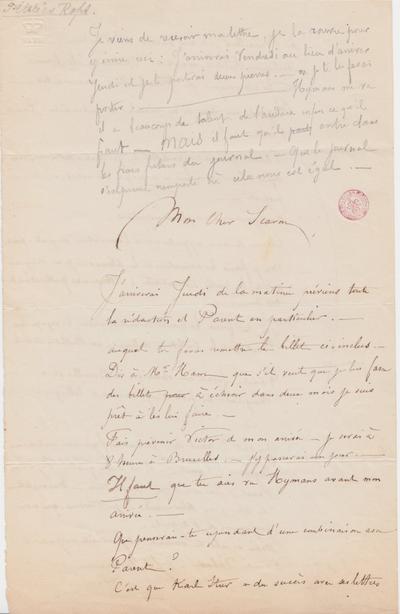 Félicien Rops
Je viens de recevoir ma lettre, je la rouvre pour
J'arriverai Vendredi au lieu d'arriver
Jeudi et je te porterai deux pierres — je te les ferai
porter. — Hymans me va
il a beaucoup de talent, de l'audace, enfin ce qu'il
faut — Mais il faut qu'il entre dans
les frais du journal. — Que le journal
s'imprime n'importe où cela nous est égal. —
Mon Cher
J'arriverai Jeudi dans la matinée préviens toute
la rédaction et Parent en particulier. —
auquel tu feras remettre le billet ci-inclus —
Dis à Mr. Ham que s'il veut que je lui fasse
des billets pour à échoir dans deux mois je suis
prêt à les lui faire. —
Fais prévenir Victor de mon arrivée — je serai à
8 heures à Bruxelles. — J'y passerai un jour. —
Il faut que tu aies vu Hymans avant mon
arrivée. —
Que penserais-tu cependant d'une combinaison avec
Parent ?
C'est que Karl Stur a du succès avec ses lettres